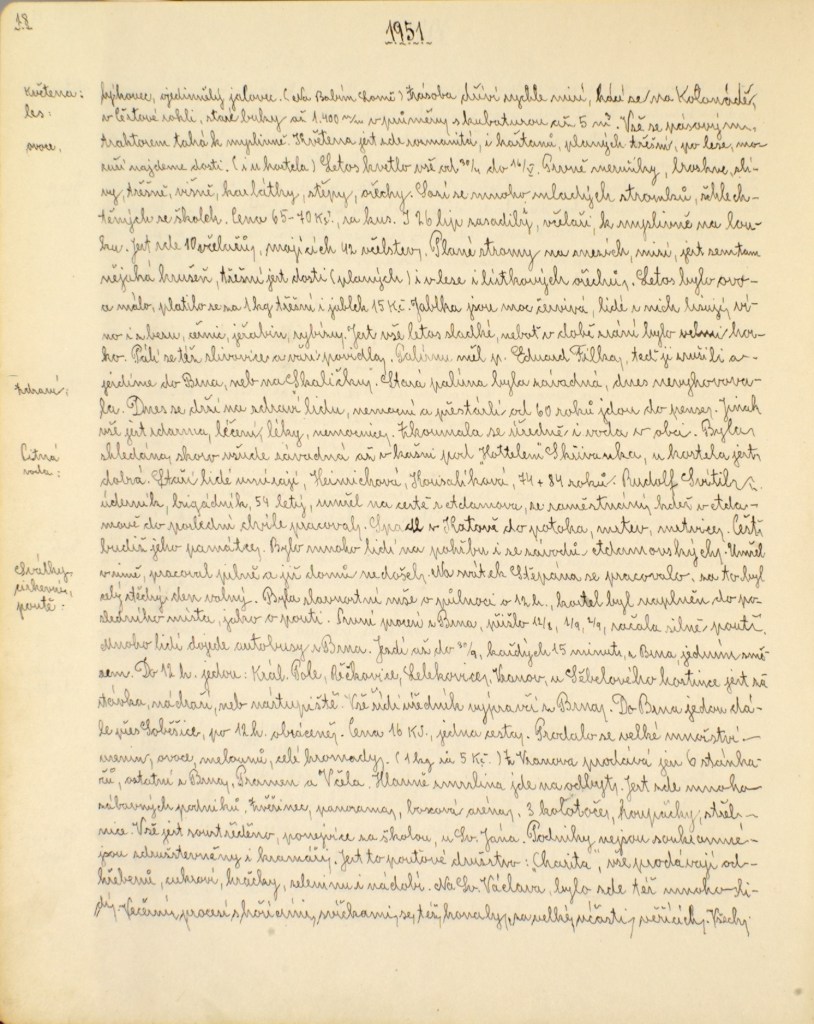 18
1951
Květena:
les:
ovoce,
lýkovec, ojedinnělý jalovec. (Na Babím Lomě) Zásoba dříví rychle mizí, hází se na Kolonádě,
v Čertově rokli, staré buky až 1.400 m/m v průměru, s kubaturou až 5 m³. Vše se pásovým
traktorem tahá k myslivně. Květena jest zde rozmanitá, i kaštanů, planých třešní, po lese, mo-
ruší najdeme dosti. (i u kostela) Letos kvetlo vše od 20/4 do 14/5. Prvně meruňky, broskve, sli-
vy, třešně, višně, karlátky, štěpy, ořechy. Sází se mnoho mladých stromků, šlech-
těných ze školek. Cena 65-70 Kč, za kus. I 26 lip zasadily, včelaři, k myslivně na lou-
ku. Jest zde 10 včelařů, majících 42 včelstev. Plané stromy na mezích, mizí, jest sem tam
nějaká hrušeň, třešní jest dosti (planých) i v lese i lískových ořechů. Letos bylo ovo-
ce málo, platilo se za 1 kg třešní i jablek 15 Kč. Jablka jsou moc červivá, lidé z nich lisují ví-
no i z bezu, černic, jeřabin, rybízu. Jest vše letos sladké, neboť v době zrání bylo velmi hor-
ko. Pálí se též slivovice a vaří povidla. Palírnu měl p. Eduard Filka, teď ji zrušili a
Zdraví:
jezdíme do Brna, neb na Skaličku. Stará palírna byla závadná, dnes nevyhovova-
la. Dnes se drží na zdraví lidu, nemocní a přestárlí od 60 roků jdou do pense. Jinak
vše jest zdarma, léčení, léky, nemocnice. Zkoumala se úředně i voda v obci. Byla
Čitná
voda:
shledána, skoro všude závadná až v kašni pod "Hottelem" Skřivanka, u kostela jest
dobrá. Staří lidé umírají, Heinichová, Housalíková, 74 + 84 roků. Rudolf Svitil
úderník, brigádník, 54 letý, umřel na cestě z Adamova, ze zaměstnání, kdež v Ada-
mově do poslední chvíle pracoval. Spadl v Katově do potoka, mrtev, mrtvice. Čest
budiž jeho památce. Bylo mnoho lidí na pohřbu i ze závodů Adamovských. Umřel
Svátky
církevní,
poutě:
v zimě, pracoval pilně a již domů nedošel. Na svátek Štěpána se pracovalo, za to byl
celý štědrý den volný. Byla slavnostní mše o půlnoci o 12 h., kostel byl naplněn do po-
sledního místa, jako o pouti. První procesí z Brna, přišlo 12/8, 1/9, 2/9, začala silně pouť.
Mnoho lidí dojede autobusy z Brna. Jezdí až do 30/9, každých 15 minut, z Brna, jedním smě-
rem. Do 12 h. jedou: Král. Pole, Řečkovice, Lelekovice, Vranov, u Ržbelového hostince jest zá-
stávka, nádraží, neb nástupiště. Vše řídí úředník výpravčí z Brna. Do Brna jedou dá-
le přes Soběšice, po 12 h. obráceně. Cena 16 Kč, jedna cesta. Prodalo se velké množství
meruněk, ovoce, melounů, celé hromady. (1 kg za 5 Kč.) Z Vranova prodává jen 6 stánka-
řů, ostatní z Brna, Pramen a Včela. Hlavně zmrzlina jde na odbyt. Jest zde mnoho
zábavných podniků, zvěřinec, panorama, boxová aréna, 3 kolotoče, houpačky, střel-
nice. Vše jest soustředěno, ponejvíce za školou, u Sv. Jána. Podniky nejsou soukromné
jsou združstevněny i kramáři. Jest to poutové družstvo: "Charita", vše prodávají od
hřebenů, cukroví, hračky, zeleninu i nádobí. Na Sv. Václava, bylo zde též mnoho li-
dí. Večerní procesí s hořícími svíčkami, se též konaly, za velké účasti, věřících. Všechy